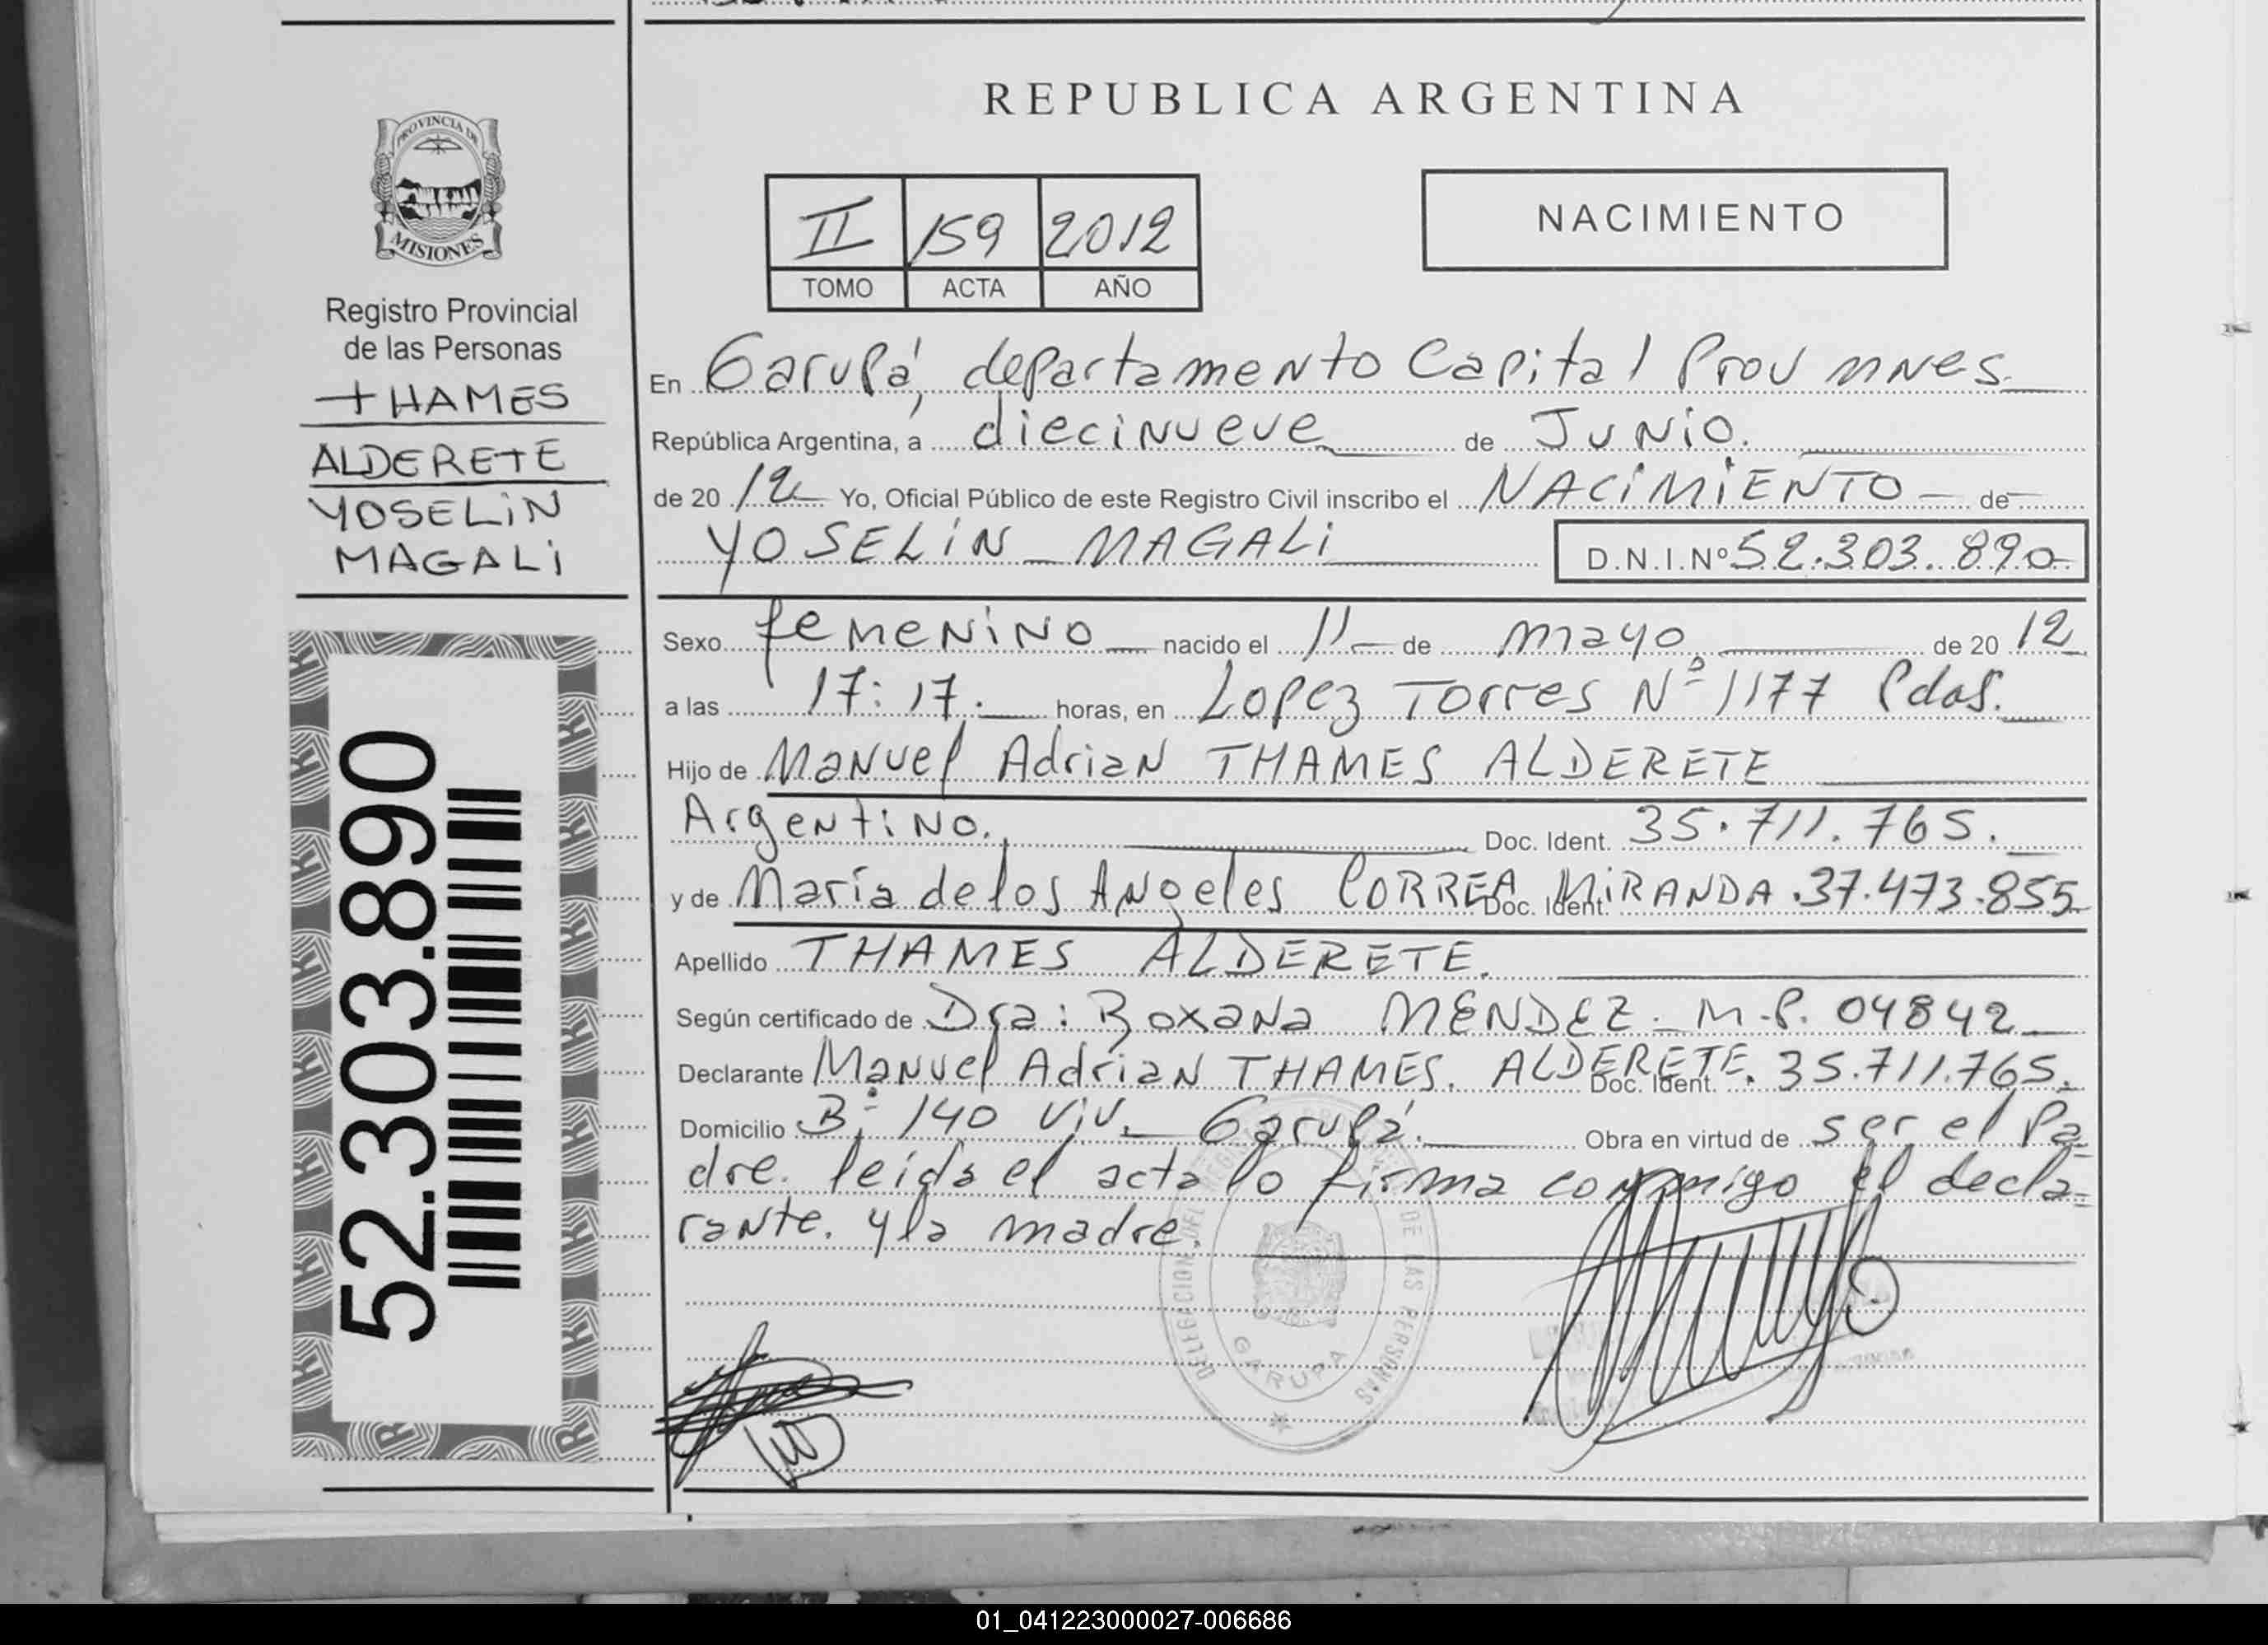 REPUBLICA ARGENTINA
PROVINCIA DE
MISIONES
Registro Provincial
de las Personas
THAMES
ALDERETE
YOSELIN
MAGALI
52.303.890
II 159 2012
TOMO ACTA AÑO
NACIMIENTO
En Garupá, departamento Capital Prov mnes
República Argentina, a diecinueve de Junio.
de 20 12 Yo, Oficial Público de este Registro Civil inscribo el NACIMIENTO de
YOSELIN MAGALI D.N.I.Nº 52.303.890
Sexo femenino nacido el 11 de mayo de 20 12
a las 17:17. horas, en Lopez Torres Nº 1177 Pdas.
Hijo de Manuel Adrian THAMES ALDERETE
Argentino. Doc. Ident. 35.711.765.
y de María de los Angeles CORREA MIRANDA Doc. Ident. 37.473.855
Apellido THAMES ALDERETE.
Según certificado de Dra: Roxana MENDEZ. M.P. 04842
Declarante Manuel Adrian THAMES. ALDERETE. Doc. Ident. 35.711.765.
Domicilio Bº 140 Viv. Garupá. Obra en virtud de ser el Pa=
dre. leida el acta lo firma conmigo el decla=
rante. y la madre.
DELEGACION DEL REGISTRO DE LAS PERSONAS
GARUPA
01_041223000027-006686